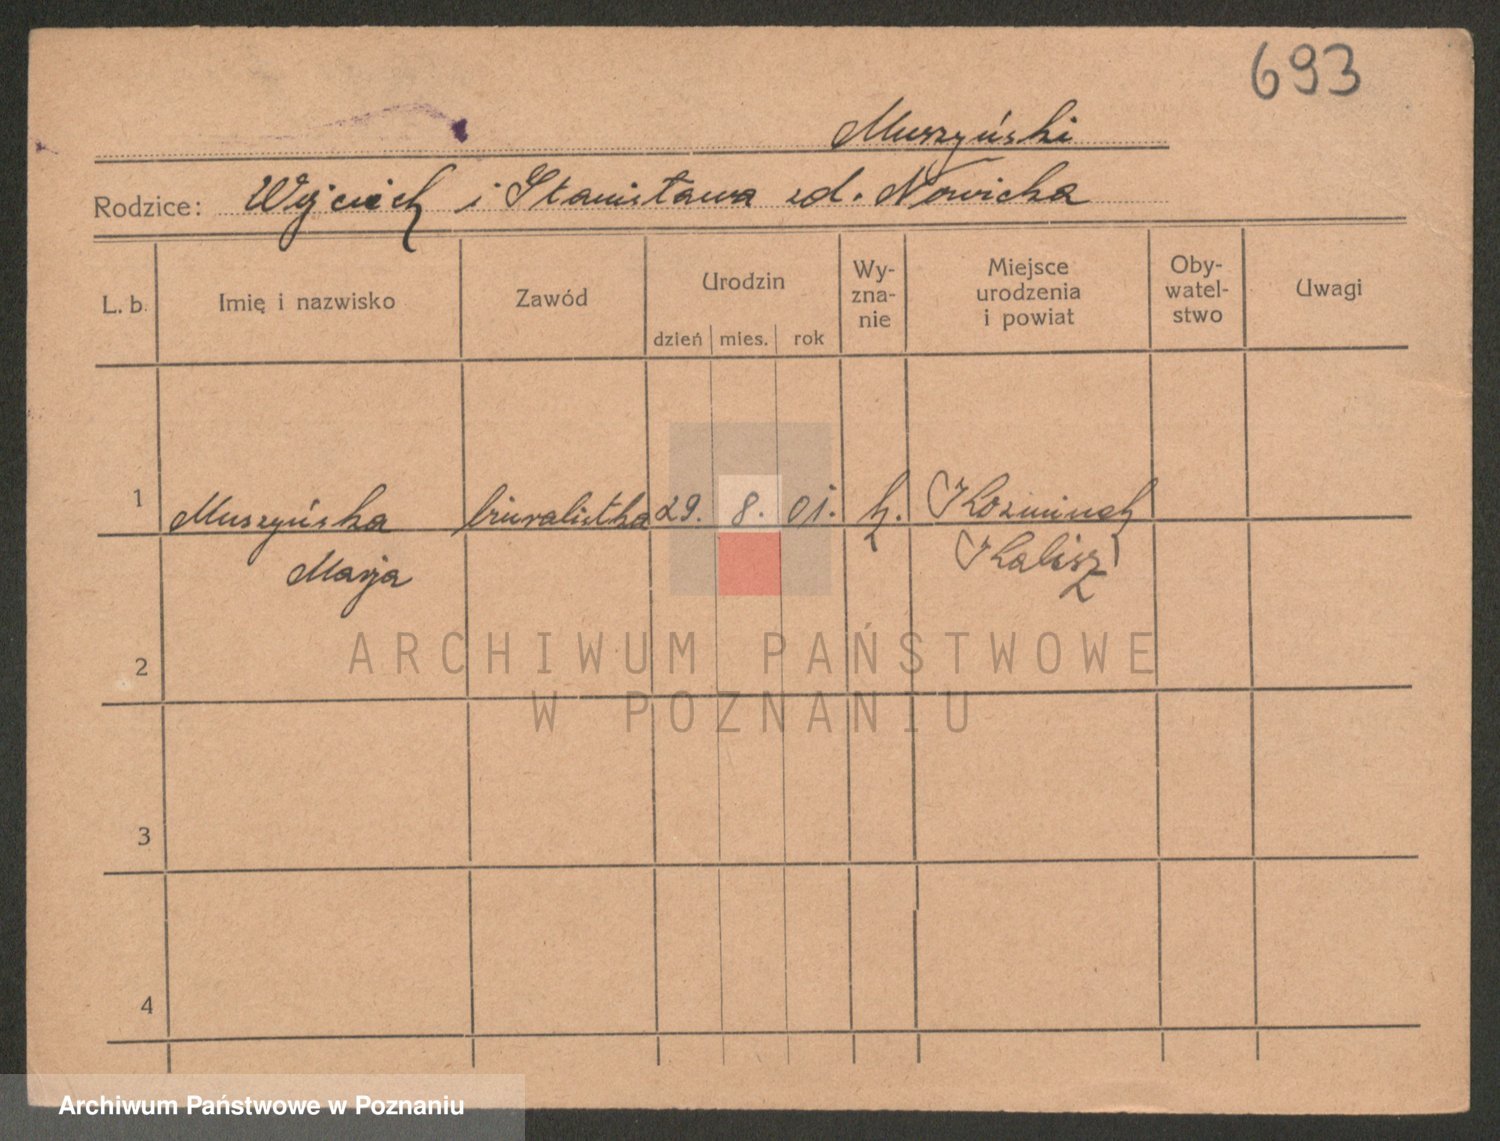 693
Muszyński
Rodzice: Wojciech i Stanisława zd. Nowicka
L. b. Imię i nazwisko Zawód Urodzin dzień mies. rok Wy-zna-nie Miejsce urodzenia i powiat Oby-watel-stwo Uwagi
1 Muszyńska biuralistka 29. 8. 01. k. Koźminek
Marja Kalisz
2
ARCHIWUM PAŃSTWOWE
W POZNANIU
3
4
Archiwum Państwowe w Poznaniu